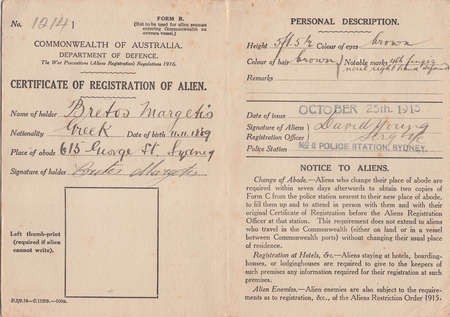 No. 1214
FORM R.
(Not to be used for alien seamen
entering Commonwealth on
oversea vessel.)
COMMONWEALTH OF AUSTRALIA.
DEPARTMENT OF DEFENCE.
The War Precautions (Alien Registration) Regulations 1916.
CERTIFICATE OF REGISTRATION OF ALIEN.
Name of holder Bretos Margetis
Nationality Greek Date of birth 11.11.1889
Place of abode 615 George St. Sydney
Signature of holder
Left thumb-print
(required if alien
cannot write).
PERSONAL DESCRIPTION.
Height 5ft 5½ Colour of eyes brown
Colour of hair brown Notable marks 4th finger
right hand
Remarks
Date of issue OCTOBER 25th. 1915
Signature of Aliens David Young
Registration Officer Sergt
Police Station No 2 POLICE STATION, SYDNEY.
NOTICE TO ALIENS.
Change of Abode.—Aliens who change their place of abode are
required within seven days afterwards to obtain two copies of
Form C from the police station nearest to their new place of abode,
to fill them up and to attend in person with them and with their
original Certificate of Registration before the Aliens Registration
Officer at that station. This requirement does not extend to aliens
who travel in the Commonwealth (either on land or in a vessel
between Commonwealth ports) without changing their usual place
of residence.
Registration at Hotels, &c.—Aliens staying at hotels, boarding-
houses, or lodginghouses are required to give to the keepers of
such premises any information required for their registration at such
premises.
Alien Enemies.—Alien enemies are also subject to the require-
ments as to registration, &c., of the Aliens Restriction Order 1915.